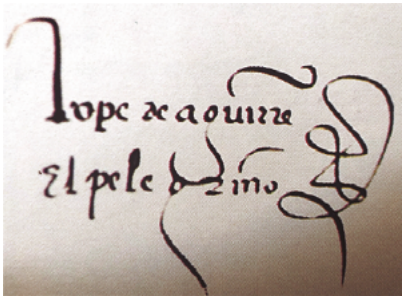 lope de aguirre
El pelegrino